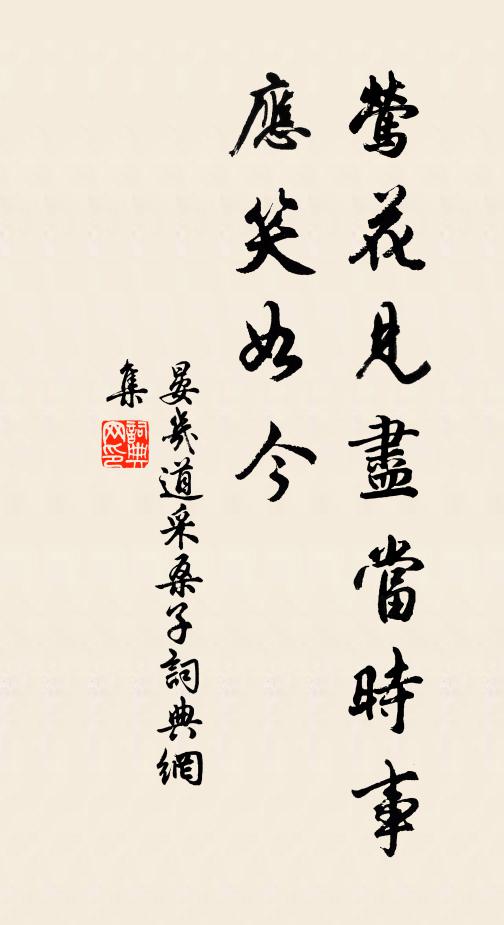 鶯花見盡當時事
應笑如今
晏幾道采桑子詞典網
集
詞典网印